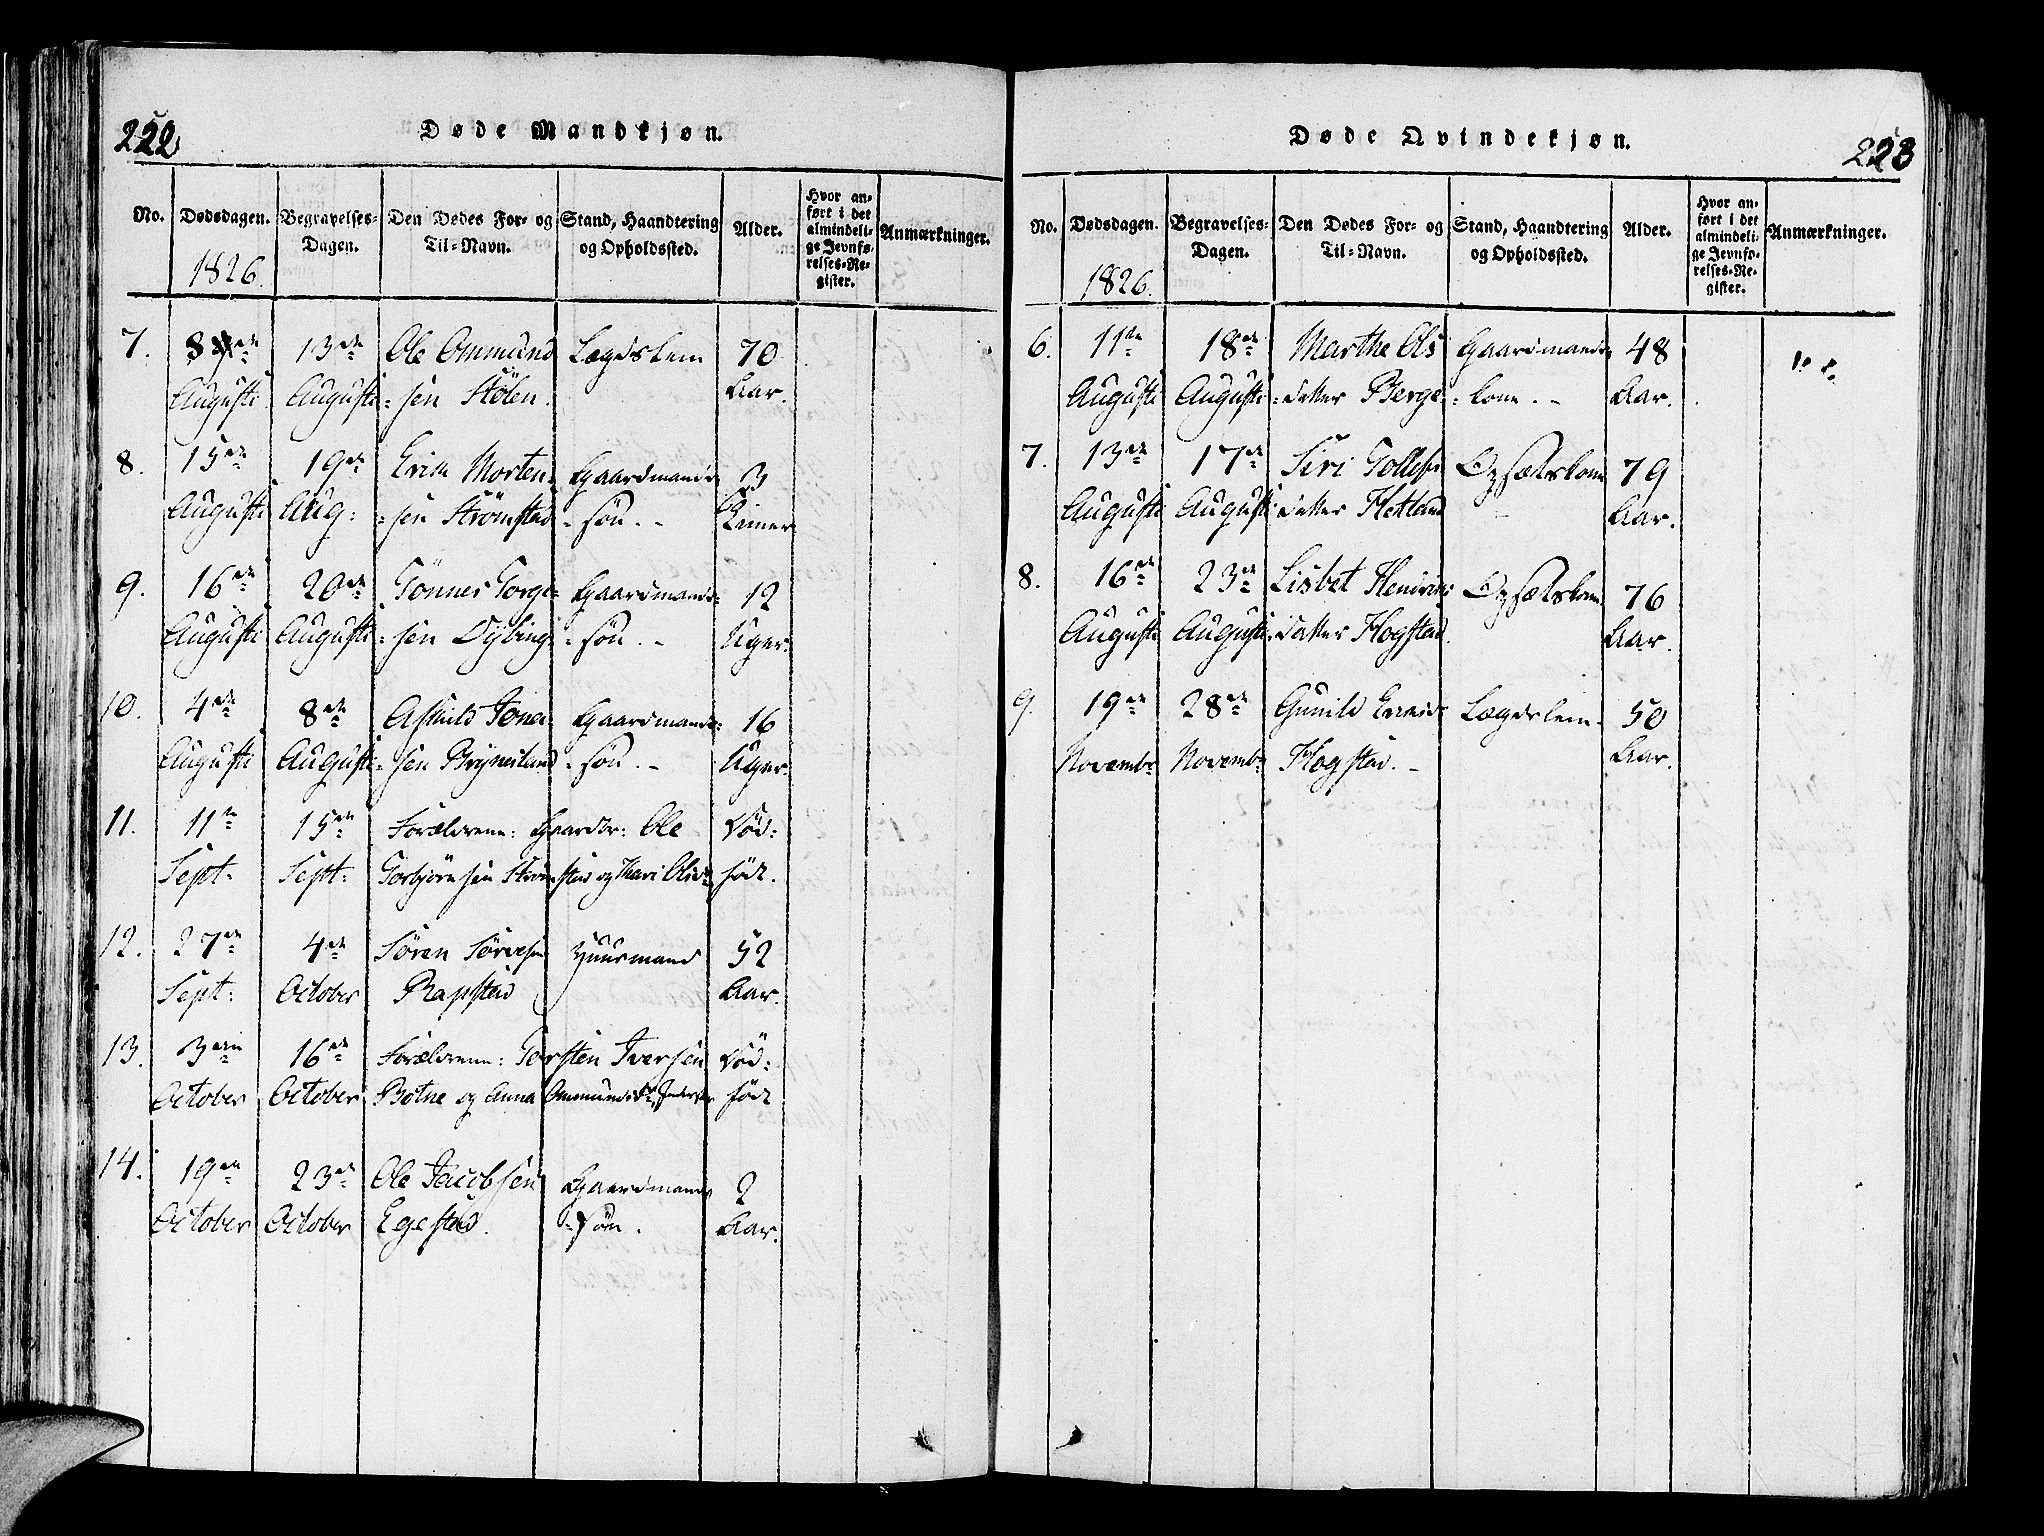 222
Døde Mandkjøn.
No. Dødsdagen. Begravelses-Dagen. Den Dødes For- og Til-Navn. Stand, Haandtering og Opholdssted. Alder. Hvor anført i det almindelige Jevnførelses-Register. Anmærkninger.
1826.
7. 8de 13de Ole Ommund Lægdslem 70
Augusti Augusti -sen Stölen. Aar.
8. 15de 19de Morten- Gaardmands 3
Augusti Aug: -sen Strömstad -søn.- Timer
9. 16de 20de Tönnes Torge- Gaardmands- 12
Augusti Augusti -sen Dybing -søn.- Uger.
10. 4de 8de Asbuld Tönes- Gaardmands- 16
Augusti Augusti -sen Brynesland -søn.- Uger.
11. 11te 15de Forældrene: Gaardbr: Ole Död-
Sept. Sept: Torbjörnsen Strömstad og Kari Olsd. född.
12. 27de 4de Sören Sörensen Huusmand 52
Sept: October Rapstad Aar.
13. 3die 16de Forældrene: Torsten Iversen Död-
October October Botne og Anna Ommundsdr. född
14. 19de 23de Ole Jacobsen Gaardmands 2
October October Egestad. -søn. Aar.
Døde Qvindekjøn.
223
No. Dødsdagen. Begravelses-Dagen. Den Dødes For- og Til-Navn. Stand, Haandtering og Opholdssted. Alder. Hvor anført i det almindelige Jevnførelses-Register. Anmærkninger.
1826.
6. 11te 18de Marthe Ols Gaardmands 48
Augusti Augusti -datter Berge -kone.- Aar.
7. 13de 17de Siri Tollefs Opsætskone 79
Augusti Augusti datter Hetland Aar.
8. 16de 23de Lisbet Hendriks Opsætskone 76
Augusti Augusti -datter Hogstad. Aar.
9. 19de 28de Gunild Lægdslem. 50
Novembr Novembr Hogstad.- Aar.